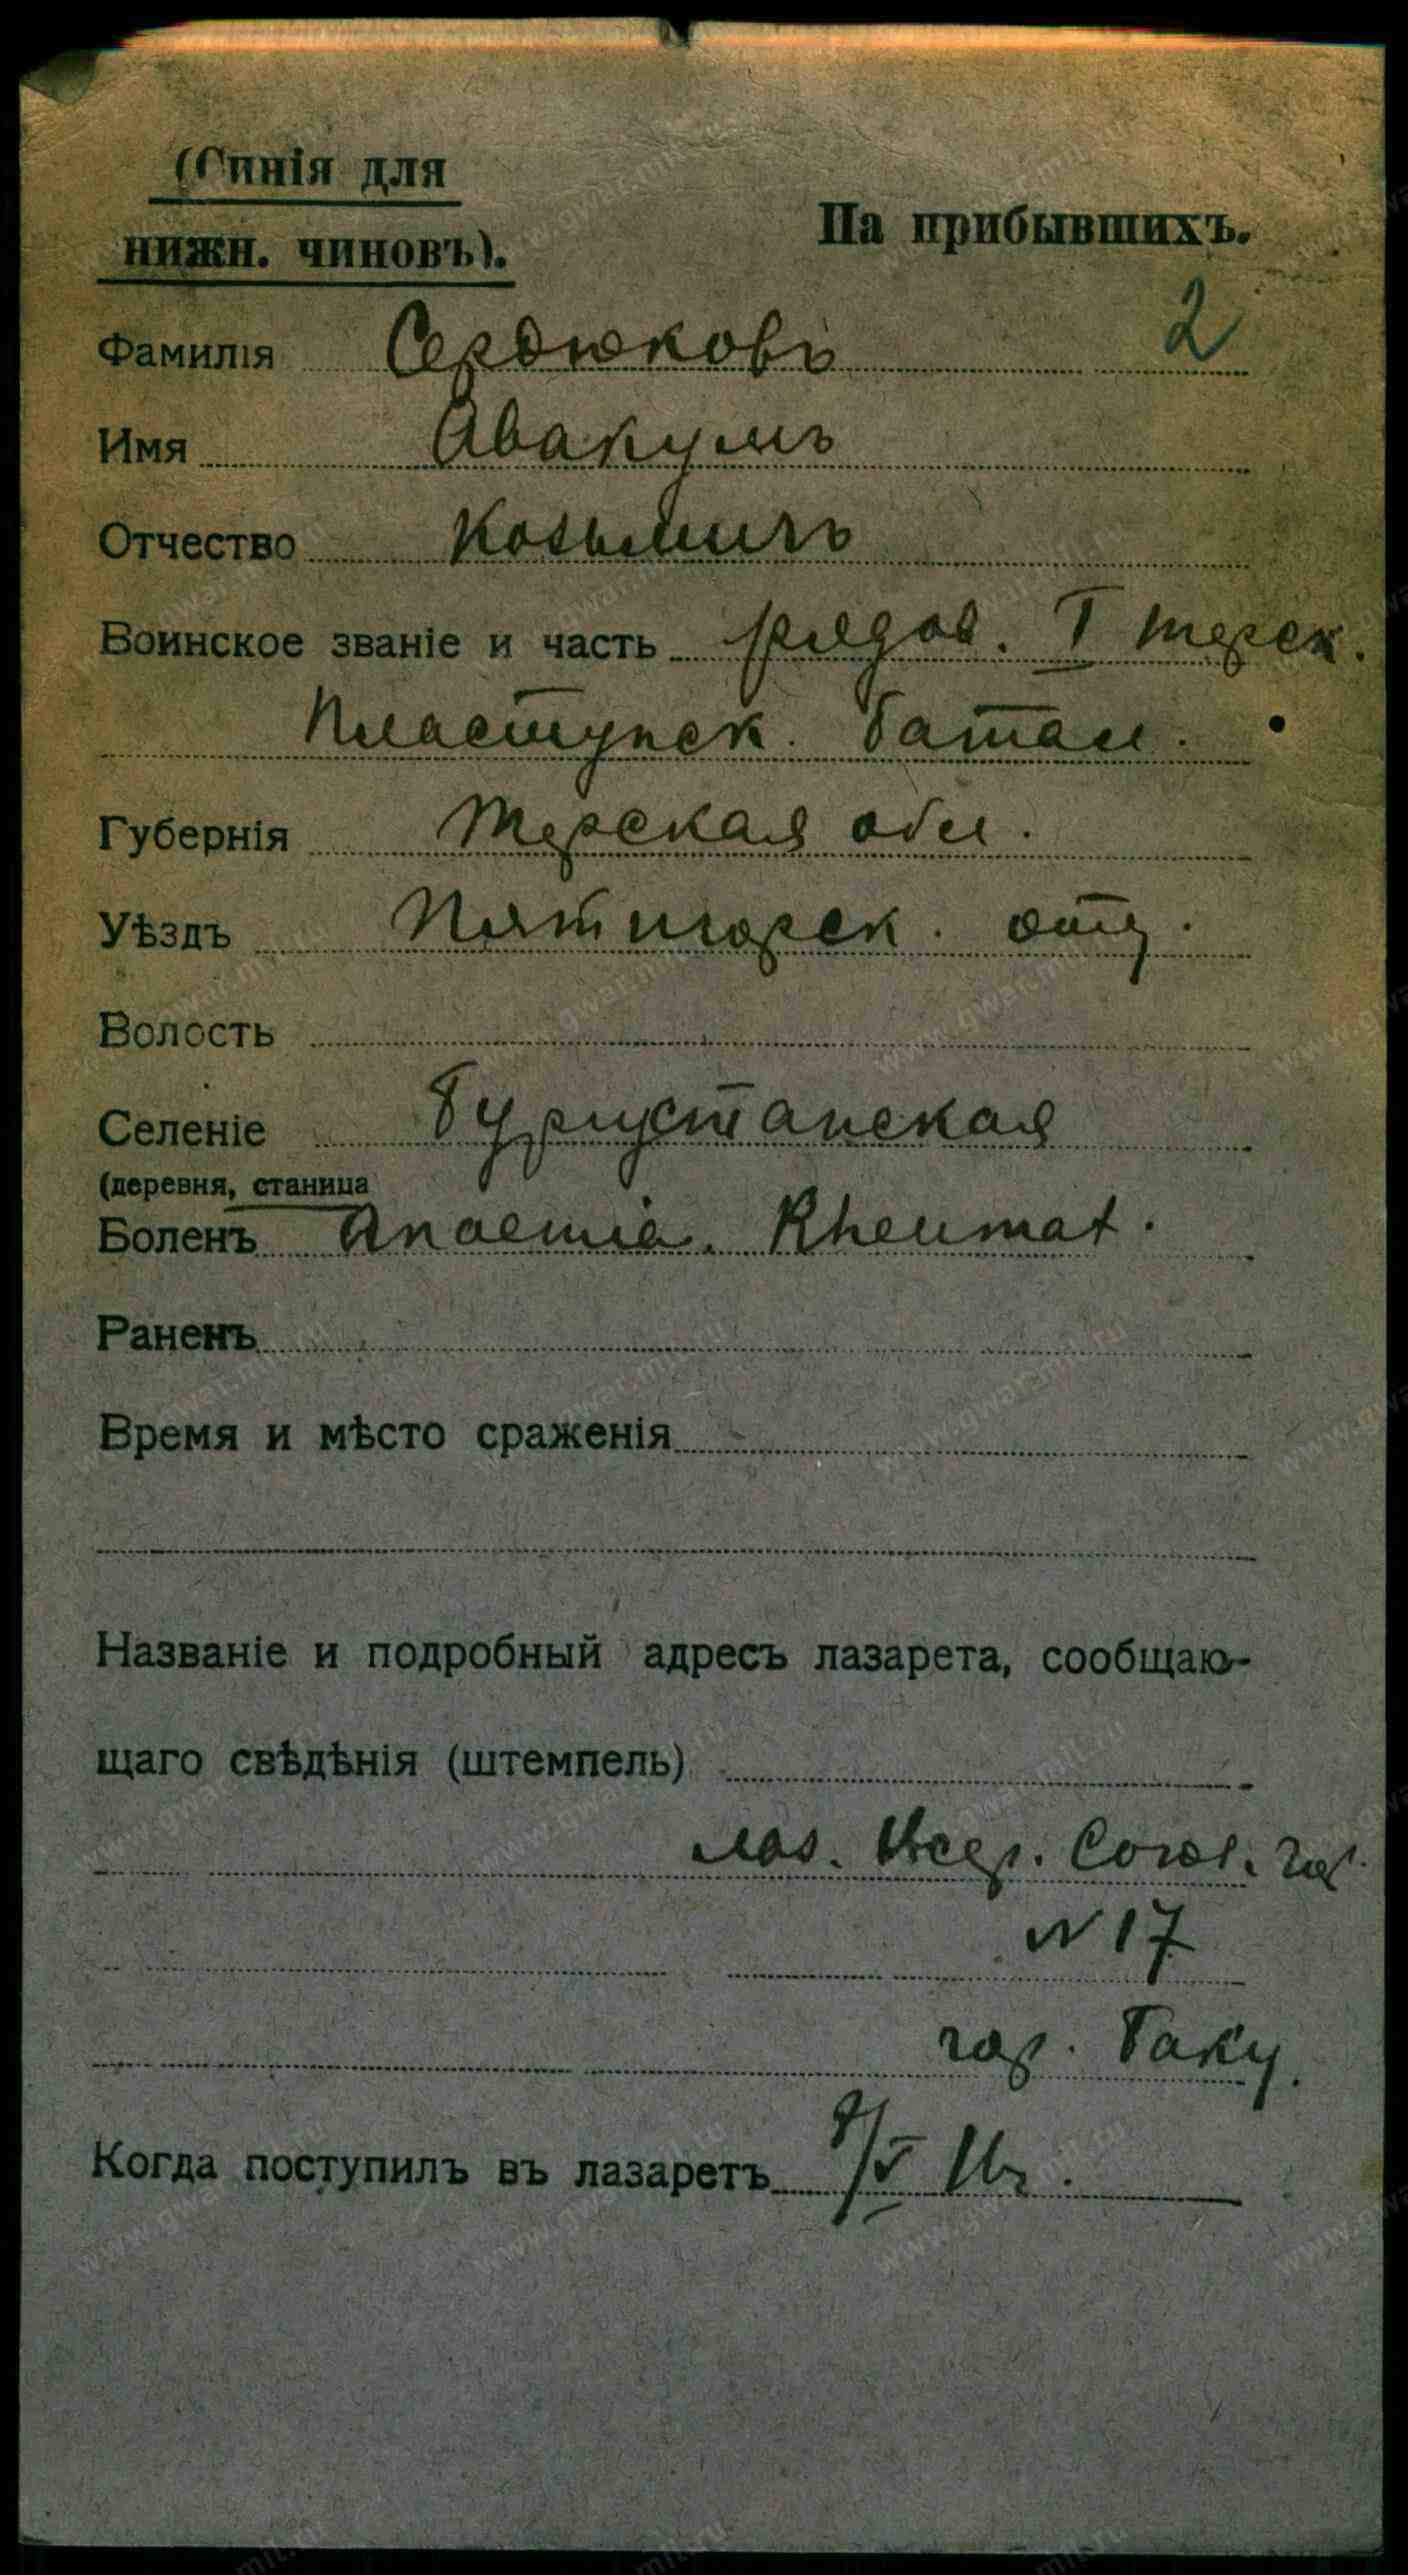 (Синія для
нижн. чиновъ).
На прибывшихъ.
2
Фамилія Сердюковъ
Имя Авакумъ
Отчество Козьмичъ
Воинское званіе и часть рядов. I Терск.
Пластунск. батал.
Губернія Терская обл.
Уѣздъ Пятигорск. отд.
Волость
Селеніе Бургустанская
(деревня, станица
Боленъ Anaemia. Rheumat.
Раненъ
Время и мѣсто сраженія
Названіе и подробный адресъ лазарета, сообщаю-
щаго свѣдѣнія (штемпель)
лаз. Всер. Союз. гор.
N 17
гор. Баку.
Когда поступилъ въ лазаретъ /V 16 г.